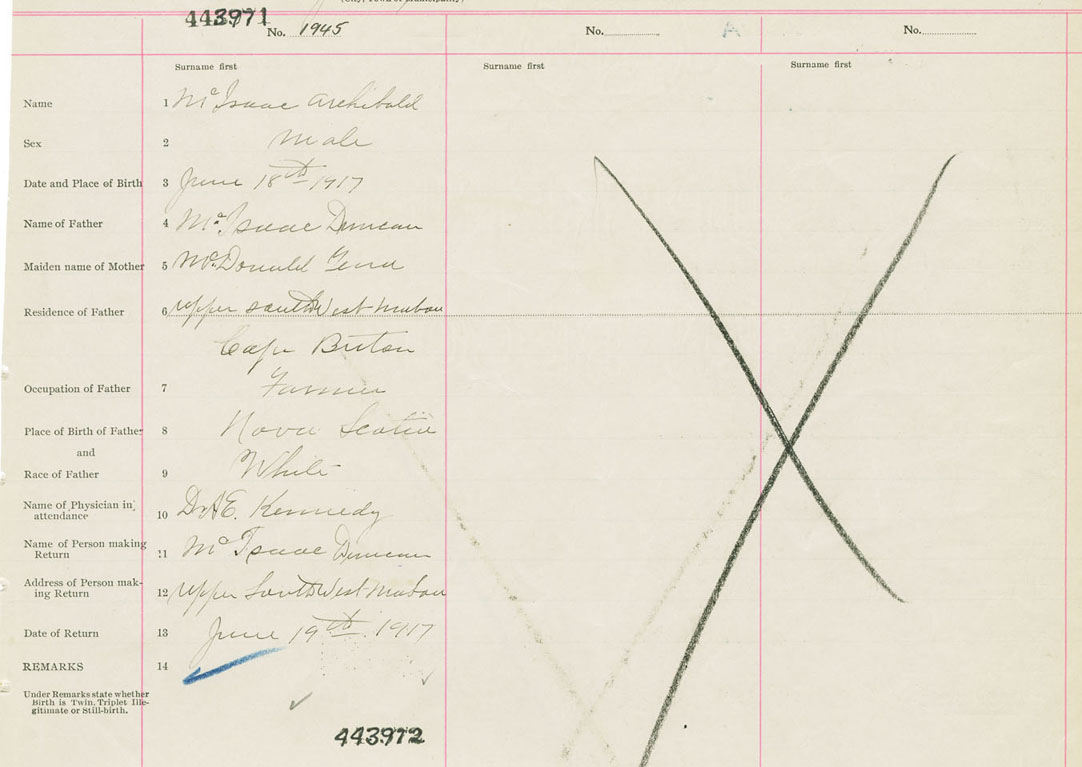 (City, Town or Municipality)
443971
No. 1945 No. A No.
Surname first Surname first Surname first
Name 1 McIsaac Archibald
Sex 2 Male
Date and Place of Birth 3 June 18th 1917
Name of Father 4 McIsaac Duncan
Maiden name of Mother 5 McDonald
Residence of Father 6 Upper South West Mabou
Cape Breton
Occupation of Father 7 Farmer
Place of Birth of Father 8 Nova Scotia
and
Race of Father 9 White
Name of Physician in
attendance 10 Dr A E. Kennedy
Name of Person making
Return 11 McIsaac Duncan
Address of Person mak-
ing Return 12 Upper South West Mabou
Date of Return 13 June 19th. 1917
REMARKS 14
Under Remarks state whether
Birth is Twin, Triplet Ille-
gitimate or Still-birth.
443972